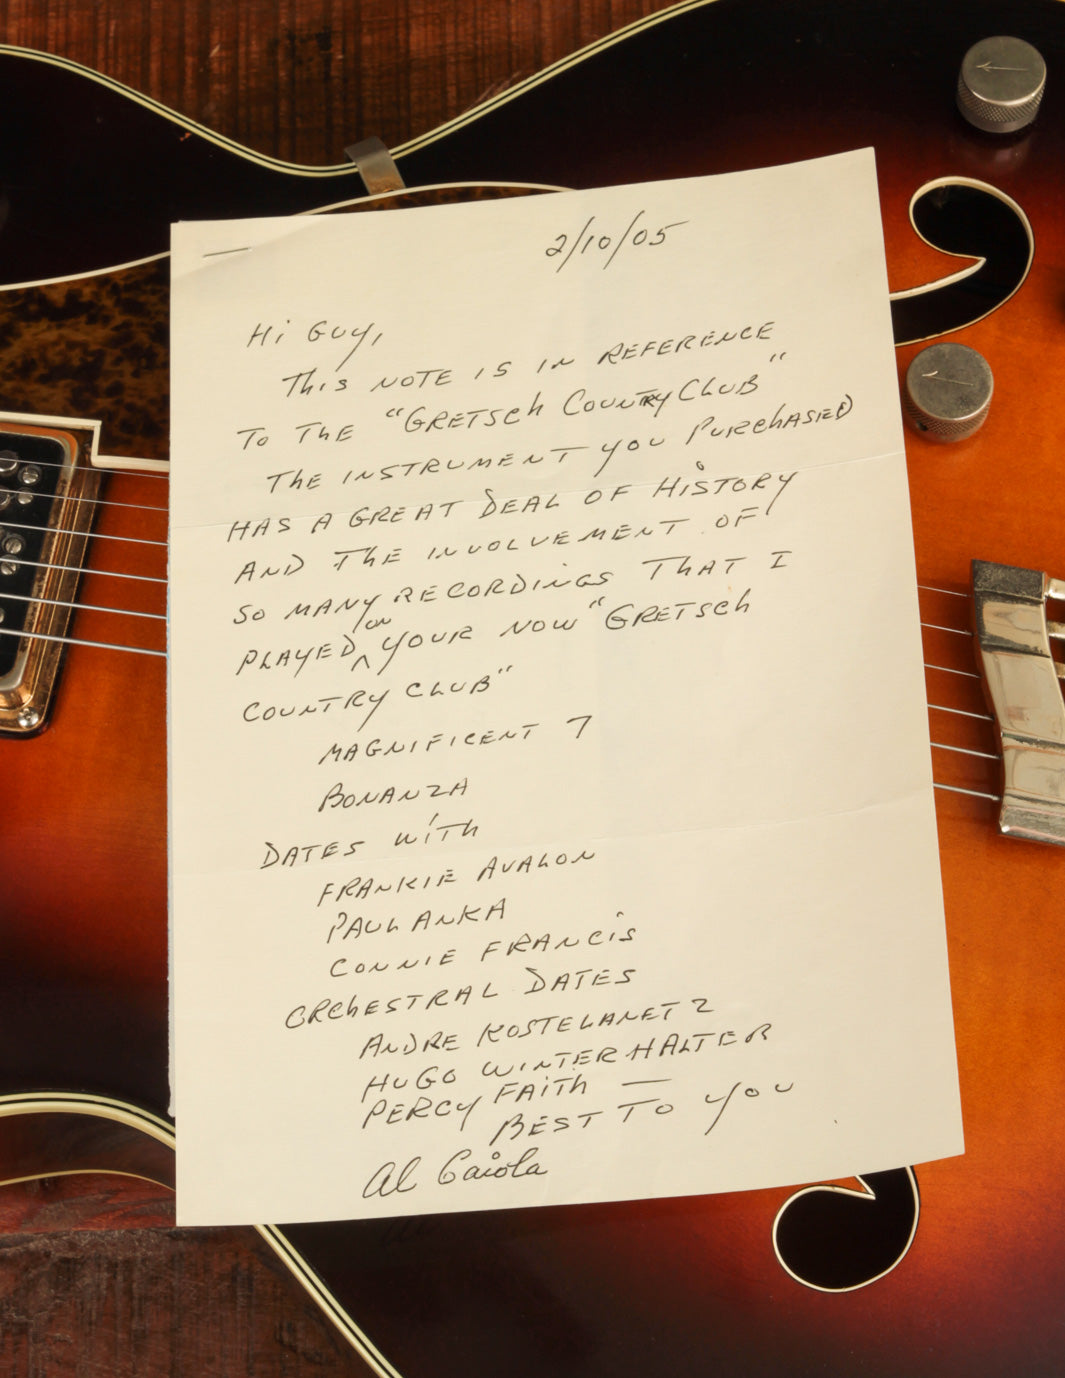 2/10/05
Hi Guy,
This note is in reference
to the "Gretsch Country Club"
The instrument you purchased
has a great deal of history
and the involvement of
so many recordings that I
played on your now "Gretsch
Country Club"
Magnificent 7
Bonanza
Dates with
Frankie Avalon
Paul Anka
Connie Francis
Orchestral Dates
Andre Kostelanetz
Hugo Winterhalter
Percy Faith —
Best to you
Al Caiola